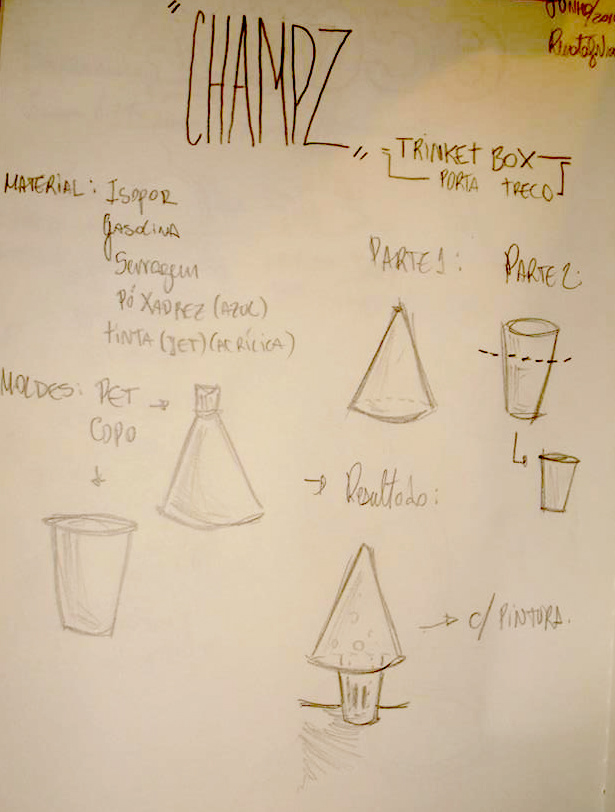 "CHAMPZ"
JUNHO/
TRINKET BOX
PORTA TRECO
MATERIAL: ISOPOR
GASOLINA
Serragem
PÓ XADREZ (AZUL)
TINTA (JET) (ACRÍLICA)
PARTE 1:
PARTE 2:
MOLDES: PET
COPO
Resultado:
C/ PINTURA.